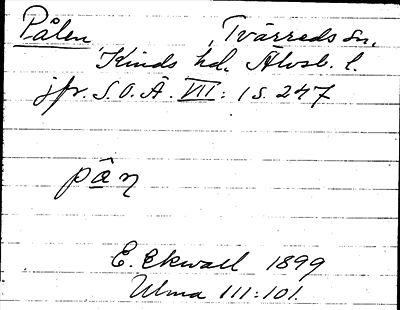 Pålen, Tvärreds sn,
Kinds hd. Älvsb. l.
jfr. S.O.Ä. VII: 1 s. 247
pân
E. Ekwall 1899
Ulma 111:101.